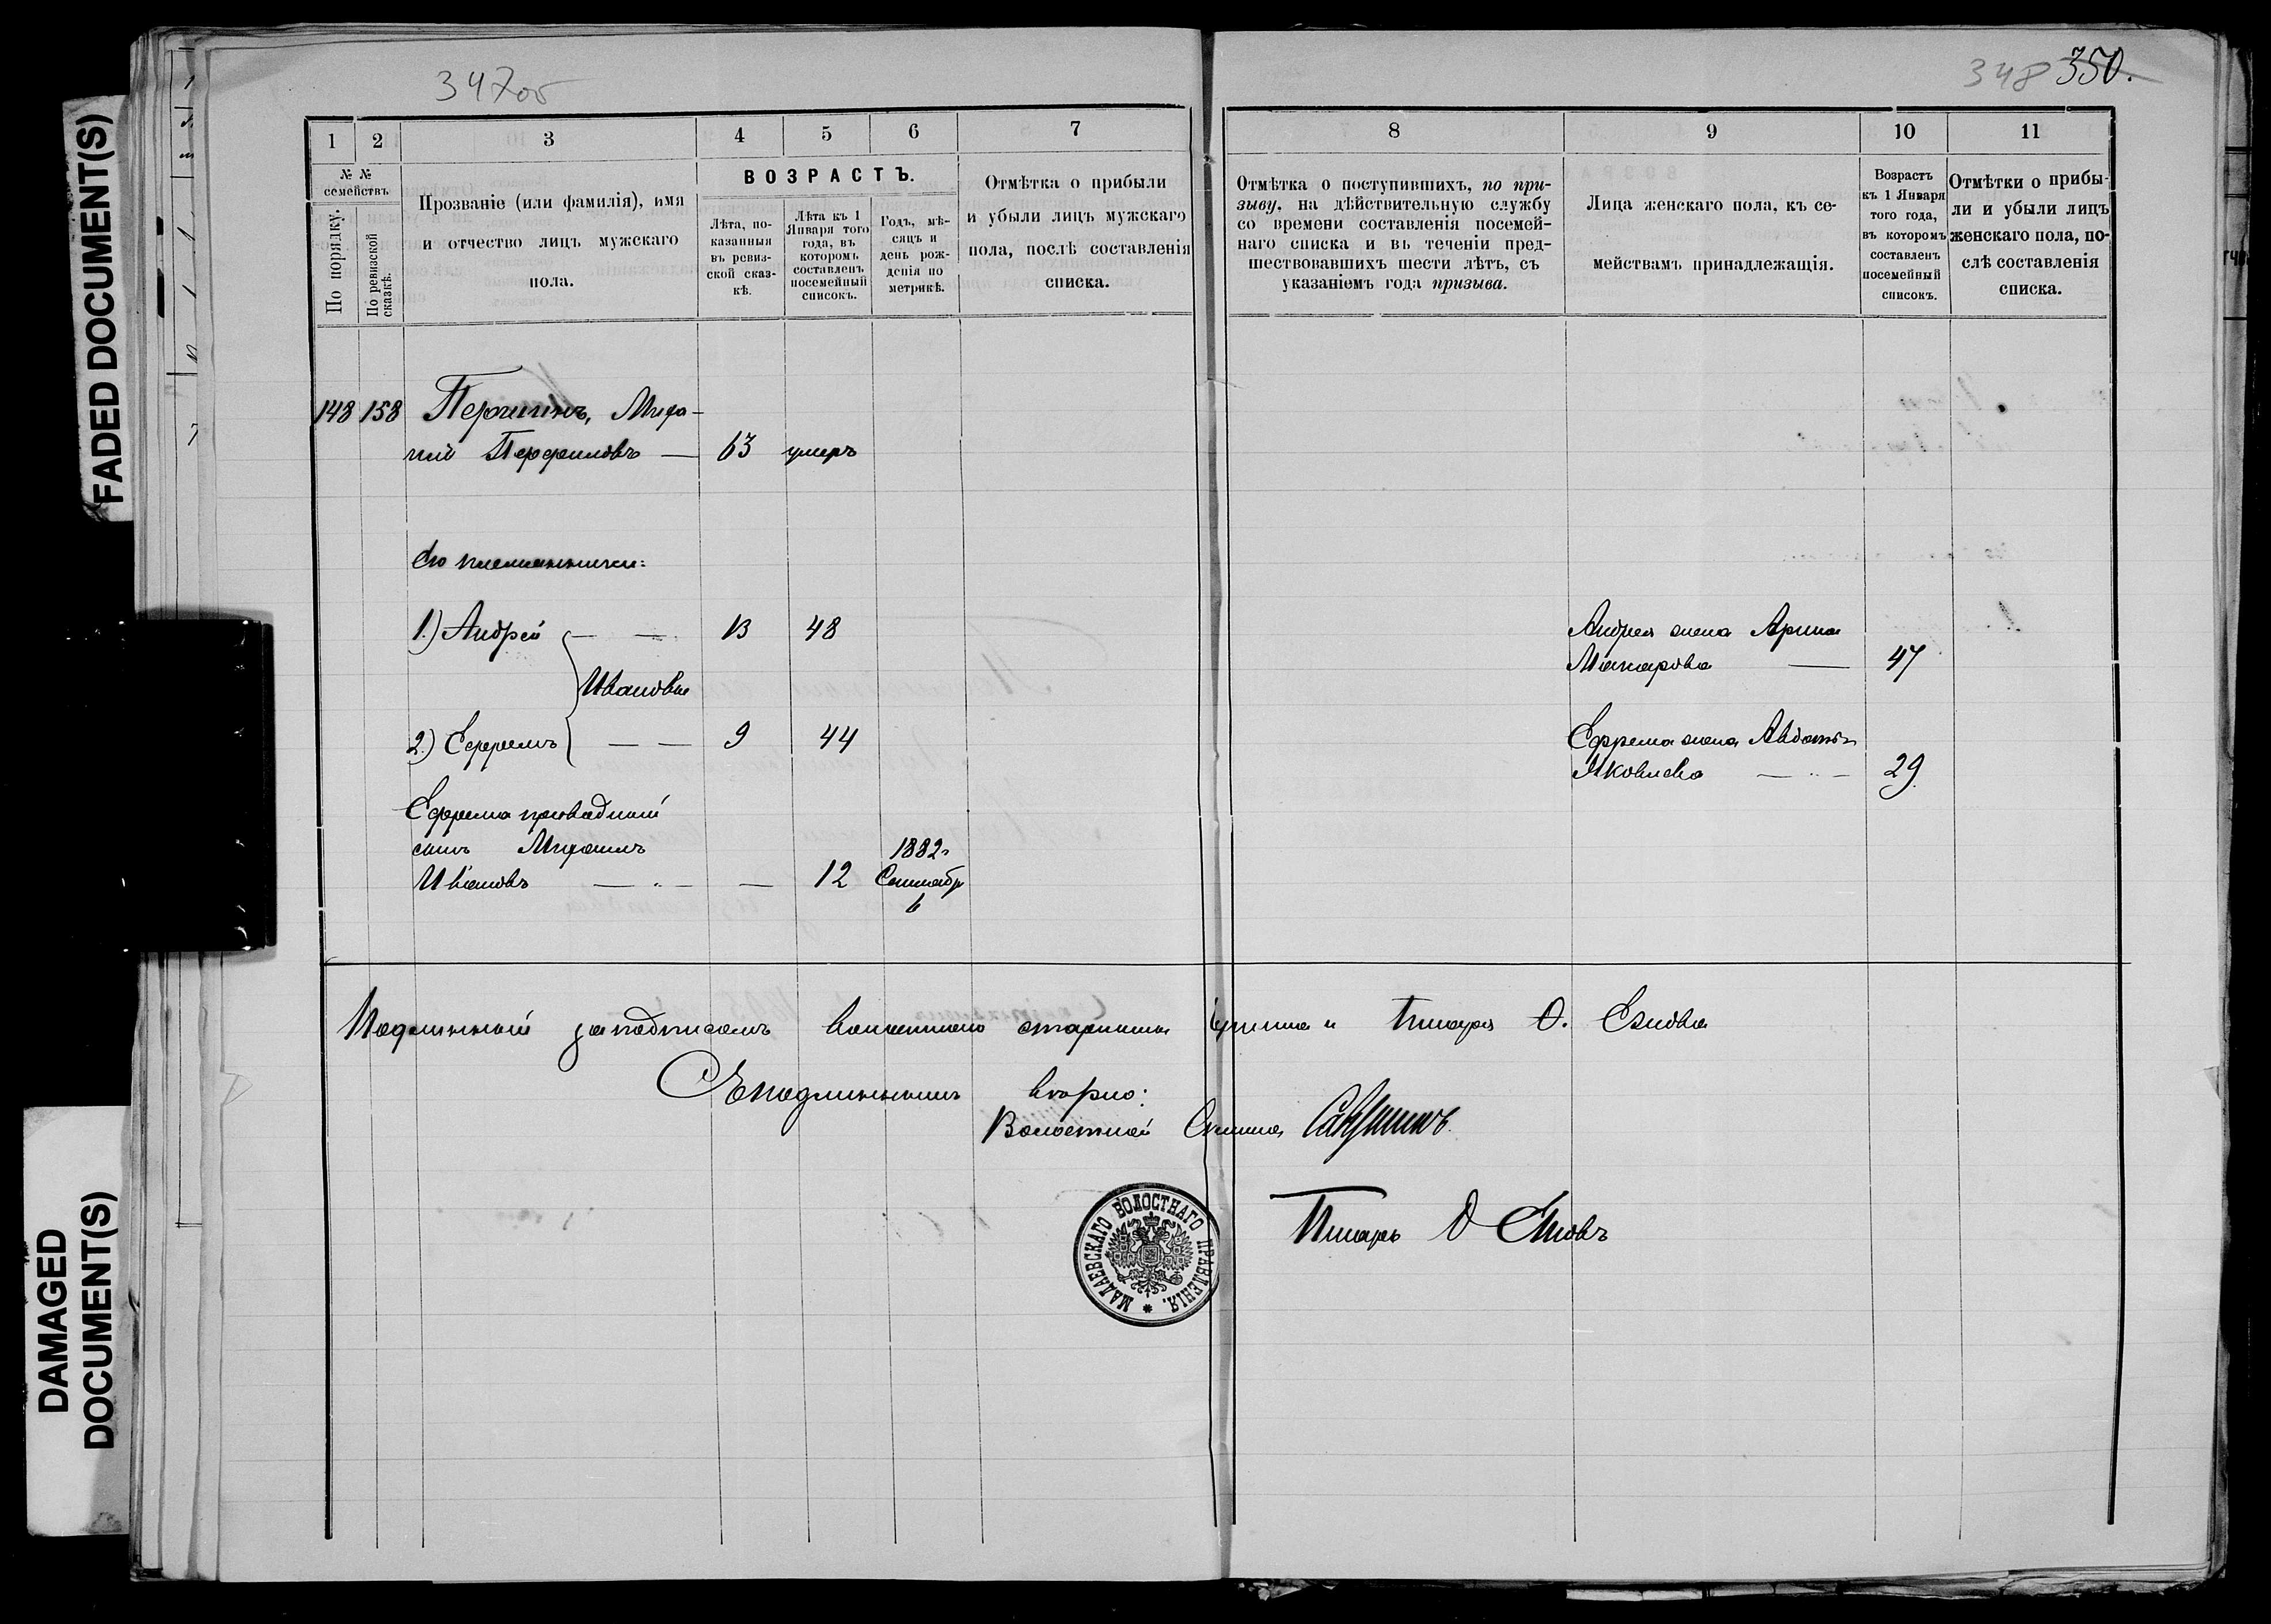 FADED DOCUMENT(S)
DAMAGED
DOCUMENT(S)
347об
348 350.
1 2 3 4 5 6 7
№ №
семействъ
По порядку.
По ревизской сказкѣ.
Прозваніе (или фамилія), имя
и отчество лицъ мужскаго
пола.
ВОЗРАСТЪ.
Лѣта, по-
казанныя
въ ревиз-
ской сказ-
кѣ.
Лѣта къ 1
Января того
года, въ
которомъ
составленъ
посемейный
списокъ.
Годъ, мѣ-
сяцъ и
день рож-
денія по
метрикѣ.
Отмѣтка о прибыли
и убыли лицъ мужскаго
пола, послѣ составленія
списка.
8 9 10 11
Отмѣтка о поступившихъ, по при-
зыву, на дѣйствительную службу
со времени составленія посемей-
наго списка и въ теченіи пред-
шествовавшихъ шести лѣтъ, съ
указаніемъ года призыва.
Лица женскаго пола, къ се-
мействамъ принадлежащія.
Возрастъ
къ 1 Января
того года,
въ которомъ
составленъ
посемейный
списокъ.
Отмѣтки о прибы-
ли и убыли лицъ
женскаго пола, по-
слѣ составленія
списка.
148 158
63 умеръ
Его племянники:
1.) Андрей — 13 48
Ивановы
2.) Ефремъ — — 9 44
Ефрема приводный
сынъ Михаилъ
Ивановъ — — — 12
1882г
Сентябр
6
Андрея жена Арина
Макарова — 47
Ефрема жена Авдотья
Яковлева — — 29.
Подлинный за подписомъ волостного старшины и писаря Ѳ.
Съ подлиннымъ вѣрно:
Волостной Старшина
Писарь Ѳ
МАДАЕВСКАГО ВОЛОСТНАГО ПРАВЛЕНІЯ.